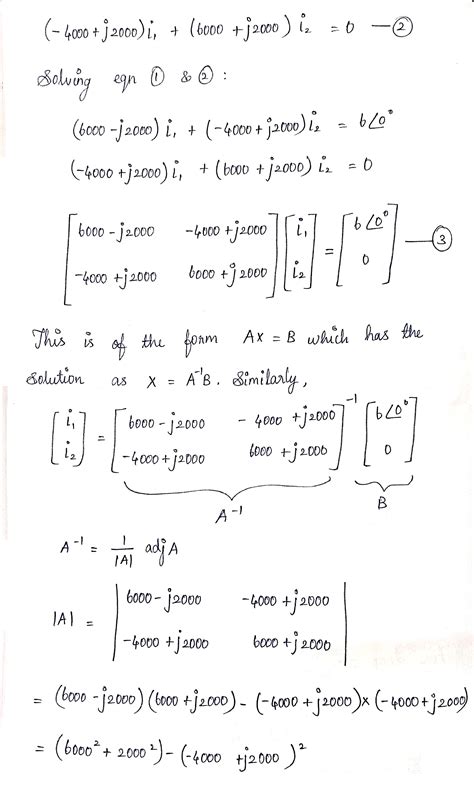 (-4000+j2000)i₁ + (6000+j2000) i₂ = 0 — ②
Solving eqn ① & ② :
(6000-j2000) i₁ + (-4000+j2000)i₂ = 6∠0°
(-4000+j2000) i₁ + (6000+j2000) i₂ = 0
[6000-j2000 -4000+j2000] [i₁] = [6∠0°] — ③
[-4000+j2000 6000+j2000] [i₂] [0]
This is of the form AX = B which has the
solution as X = A⁻¹B. Similarly,
[i₁] = [6000-j2000 -4000+j2000]⁻¹ [6∠0°]
[i₂] [-4000+j2000 6000+j2000] [0]
A⁻¹ B
A⁻¹ = 1/|A| adj A
|A| = |6000-j2000 -4000+j2000|
|-4000+j2000 6000+j2000|
= (6000-j2000)(6000+j2000) - (-4000+j2000)×(-4000+j2000)
= (6000²+2000²)-(-4000 +j2000)²